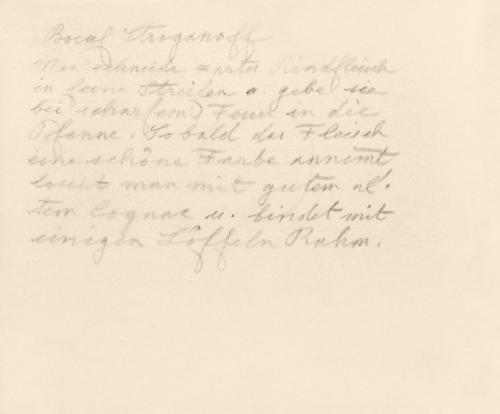 Boeuf Stroganoff
Man schneide zartes Rindfleisch
in feine Streifen u. gebe sie
bei scharfem Feuer in die
Pfanne. Sobald das Fleisch
eine schöne Farbe annimt
löscht man mit gutem al-
tem Cognac u. bindet mit
einigen Löffeln Rahm.